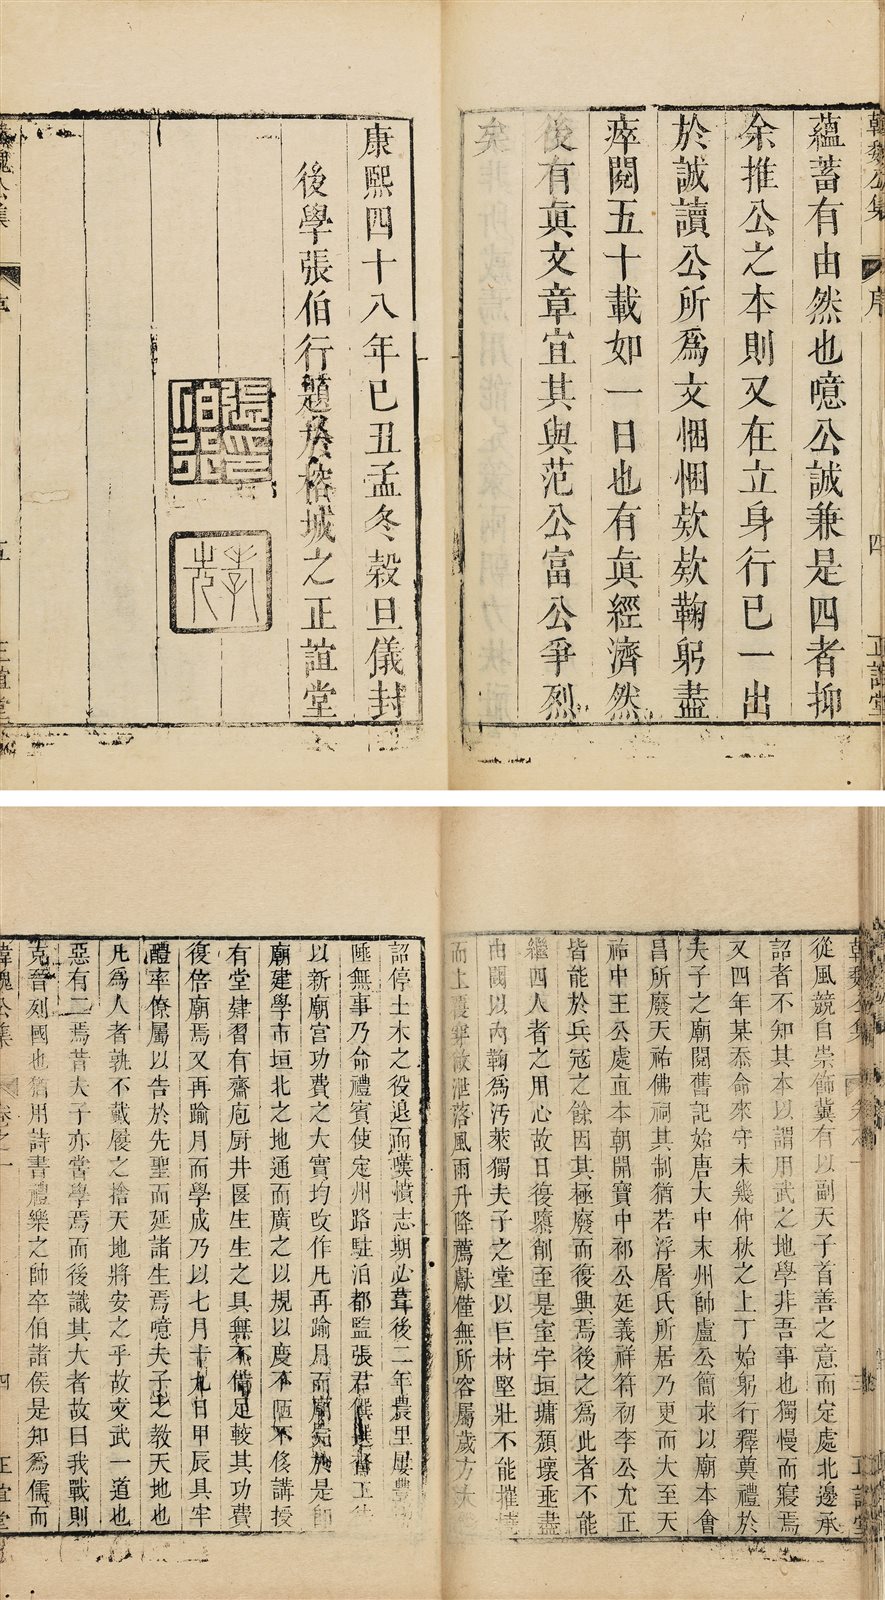 韓魏公集
序
四
正誼堂
蘊蓄有由然也噫公誠兼是四者抑
余推公之本則又在立身行已一出
於誠讀公所爲文悃悃欵欵鞠躬盡
瘁閱五十載如一日也有眞經濟然
後有眞文章宜其與范公富公爭烈
矣
康熙四十八年已丑孟冬穀旦儀封
後學張伯行題於榕城之正誼堂
張伯行印
孝先
魏公集
序
五
正誼堂
韓魏公集
正誼堂
從風競自崇飾冀有以副天子首善之意而定處北邊承
詔者不知其本以謂用武之地學非吾事也獨慢而寢焉
又四年某忝命來守未幾仲秋之上丁始躬行釋奠禮於
夫子之廟閱舊記始唐大中末州帥盧公簡求以廟本會
昌所廢天祐佛祠其制猶若浮屠氏所居乃更而大至天
祐中王公處直本朝開寶中祁公廷義祥符初李公允正
皆能於兵冦之餘因其極廢而復興焉後之爲此者不能
繼四人者之用心故日復隳削至是室宇垣墉頹壞亟盡
由閫以內鞠爲汚萊獨夫子之堂以巨材堅壯不能摧
而上覆穿敝泄落風雨升降薦獻僅無所容屬歲方大
詔停土木之役退而嘆憤志期必葺後二年農里屢豐
陲無事乃命禮賓使定州路駐泊都監張君僎選督工徒
以新廟宮功費之大實均改作凡再踰月而廟完於是即
廟建學市垣北之地通而廣之以規以度不陋不侈講授
有堂肄習有齋庖厨井匽生生之具無不備足較其功費
復倍廟焉又再踰月而學成乃以七月十九日甲辰具牢
醴率僚屬以告於先聖而延諸生焉噫夫子之教天地也
凡爲人者孰不戴履之捨天地將安之乎故文武一道也
惡有二焉昔夫子亦嘗學焉而後識其大者故曰我戰則
克晉列國也猶用詩書禮樂之帥卒伯諸侯是知爲儒而
韓魏公集
卷之一
四
正誼堂